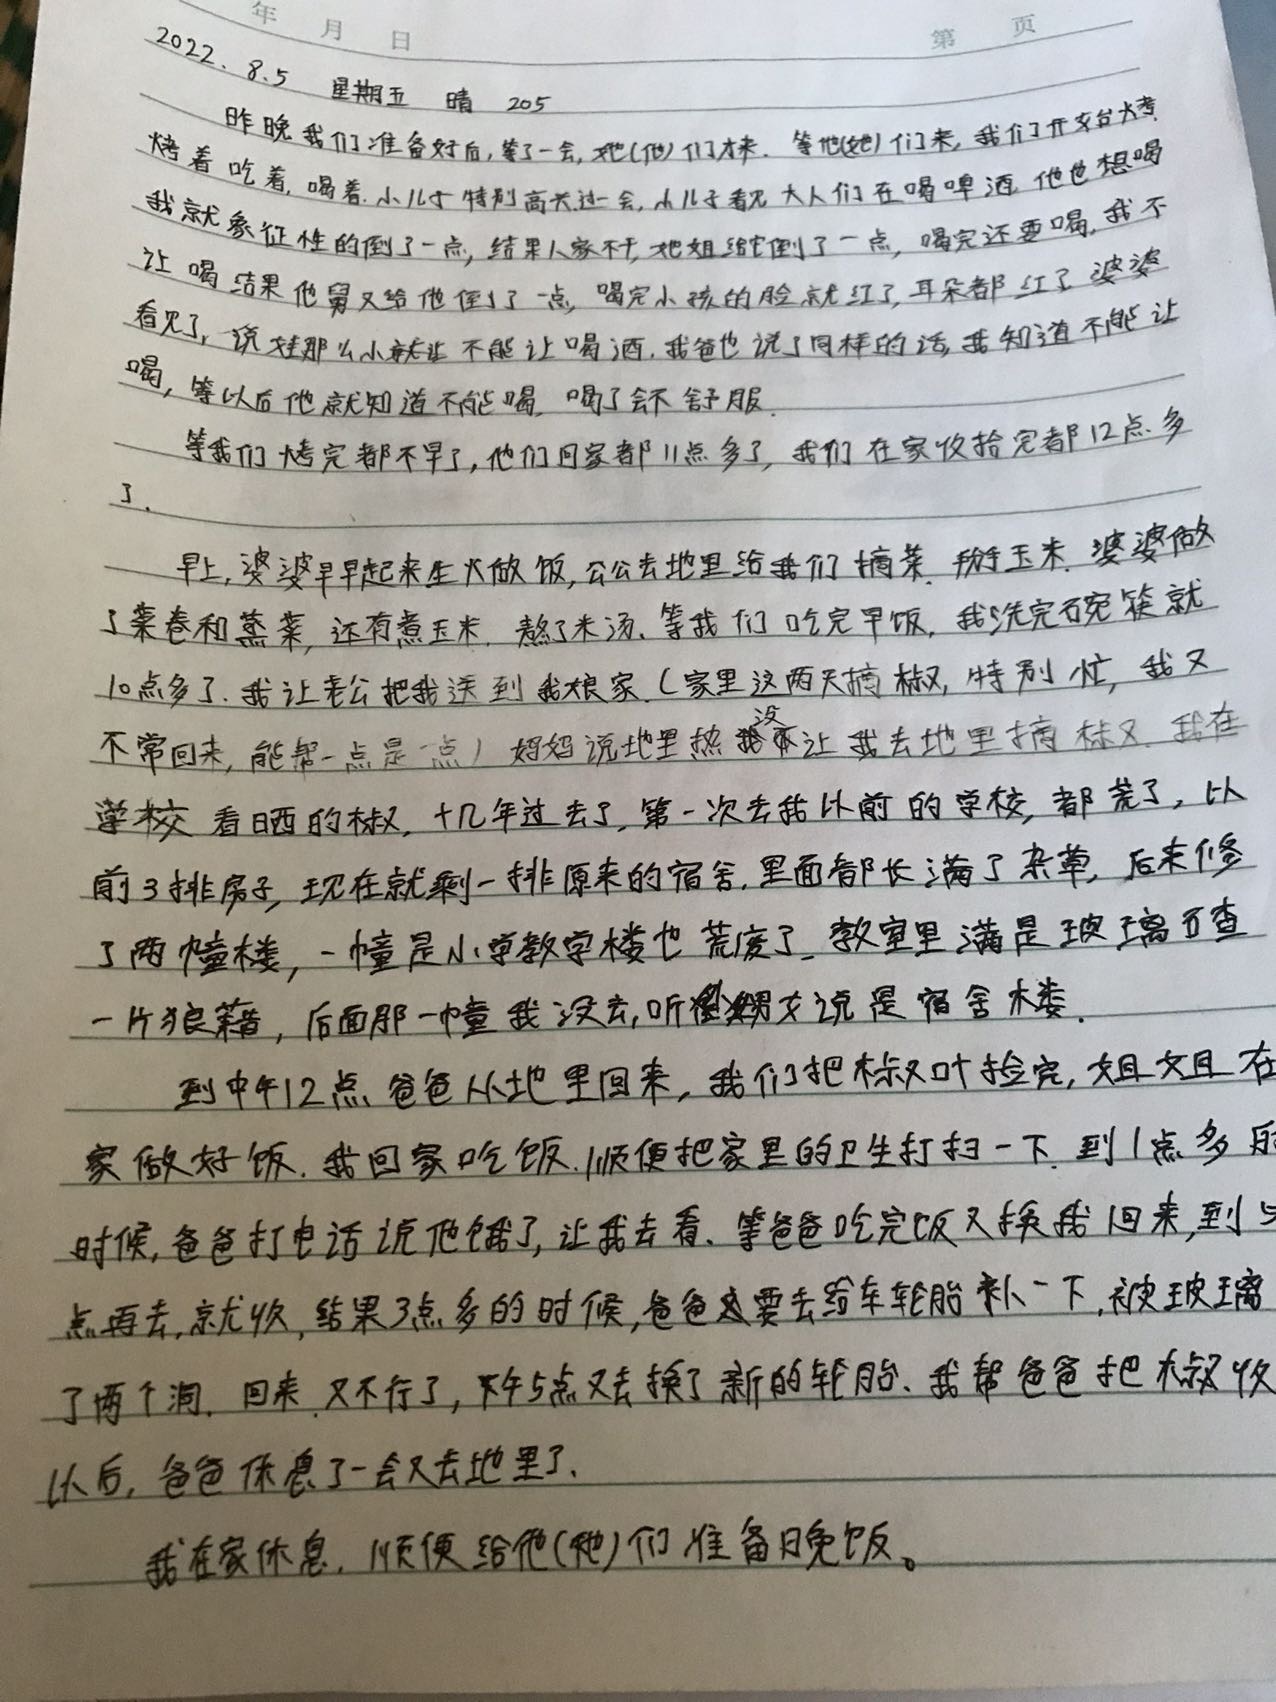 年 月 日 第 页
2022.8.5 星期五 晴 205
昨晚我们准备好后,等了一会,她(他)们才来.等他(她)们来,我们开始台大考.
烤着吃着,喝着.小儿子特别高兴过一会,小儿子看见大人们在喝啤酒他也想喝
我就象征性的倒了一点,结果人家不干,他姐给它倒了一点,喝完还要喝,我不
让喝结果他舅又给他倒了一点,喝完小孩的脸就红了,耳朵都红了婆婆
看见了,说娃那么小就让不能让喝酒.我爸也说了同样的话,我知道不能让
喝,等以后他就知道不能喝.喝了会不舒服.
等我们烤完都不早了,他们回家都11点多了,我们在家收拾完都12点多
了.
早上,婆婆早早起来生火做饭,公公去地里给我们摘菜.掰玉米.婆婆做
了菜卷和蒸菜,还有煮玉米.熬了米汤.等我们吃完早饭,我洗完碗筷就
10点多了.我让老公把我送到我娘家(家里这两天摘椒,特别忙,我又
不常回来,能帮一点是一点)妈妈说地里热没让我去地里摘椒.我在
学校看晒的椒,十几年过去了,第一次去我以前的学校,都荒了,以
前3排房子,现在就剩一排原来的宿舍.里面都长满了杂草,后来修
了两幢楼,一幢是小学教学楼也荒废了.教室里满是玻璃碴
一片狼藉,后面那一幢我没去,听甥女说是宿舍楼.
到中午12点爸爸从地里回来,我们把椒叶捡完,姐姐在
家做好饭.我回家吃饭.顺便把家里的卫生打扫一下.到1点多的
时候,爸爸打电话说他饿了,让我去看.等爸爸吃完饭又换我回来,到
点再去,就收,结果3点多的时候,爸爸要去给车轮胎补一下,被玻璃
了两个洞.回来又不行了,下午5点又去换了新的轮胎.我帮爸爸把椒收
以后,爸爸休息了一会又去地里了.
我在家休息.顺便给他(她)们准备晚饭。